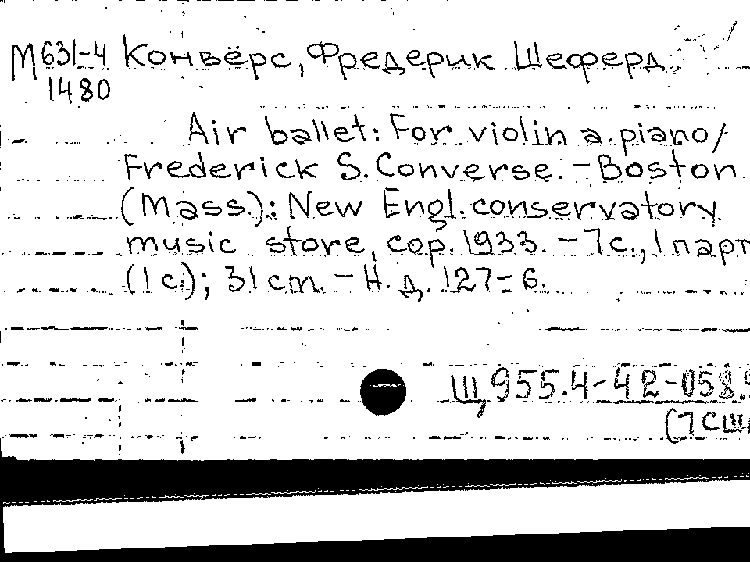 М631-4 Конвёрс, Фредерик Шеферд.
1480
Air ballet: For violin a. piano/
Frederick S. Converse. – Boston
(Mass.): New Engl. conservatory
music store, cop. 1933. – 7 с., 1 парт
(1 с.); 31 cm. – Н. д. 127-6.
Щ 955.4-42-058.
(7 США